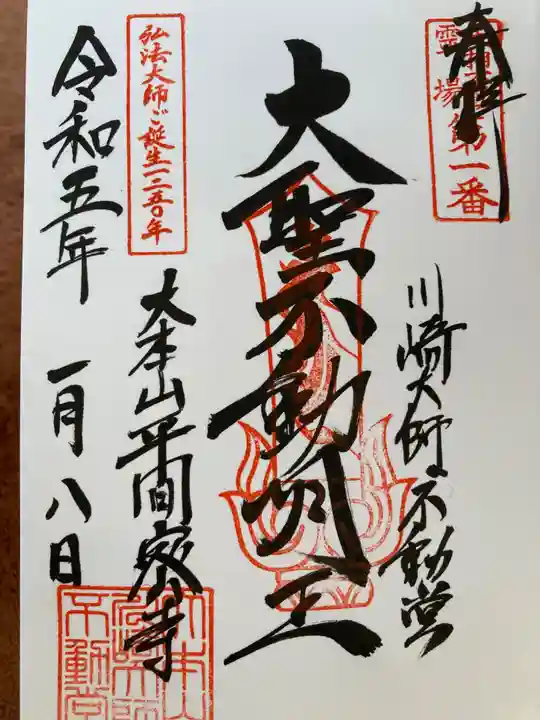 奉拝
霊場第一番
川崎大師不動堂
大聖不動明王
大本山平間寺
弘法大師ご誕生一二五〇年
令和五年
一月八日
不動堂